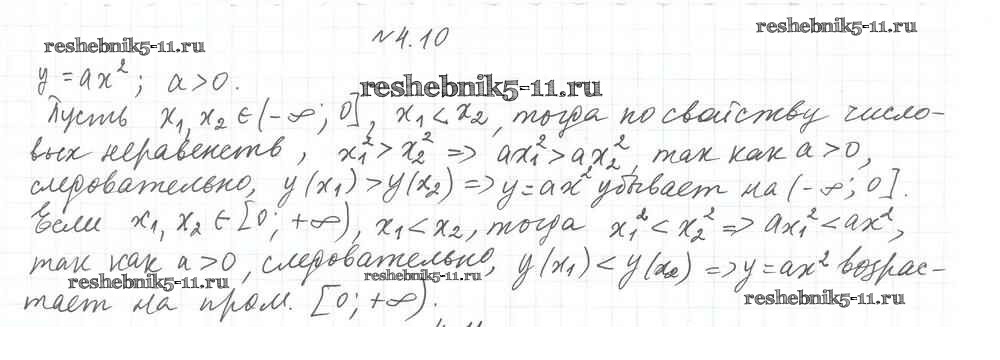 №4.10
reshebnik5-11.ru
reshebnik5-11.ru
y = ax²; a>0.
reshebnik5-11.ru
Пусть x₁, x₂ ∈ (-∞; 0], x₁ < x₂, тогда по свойству число-
вых неравенств, x₁² > x₂² => ax₁² > ax₂², так как a>0,
следовательно, y(x₁) > y(x₂) => y = ax² убывает на (-∞; 0].
Если x₁, x₂ ∈ [0; +∞), x₁ < x₂, тогда x₁² < x₂² => ax₁² < ax²,
так как a>0, следовательно, y(x₁) < y(x₂) => y = ax² возрас-
reshebnik5-11.ru
reshebnik5-11.ru
reshebnik5-11.ru
тает на пром. [0; +∞).